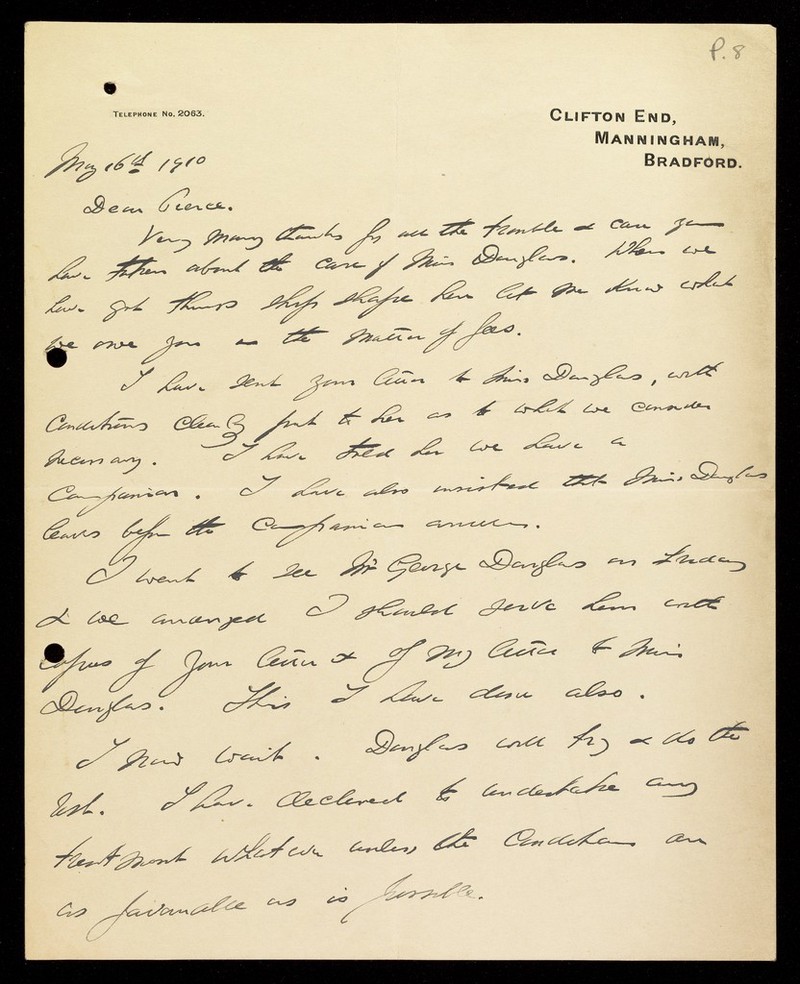 P. 8
TELEPHONE NO. 2063.
CLIFTON END,
MANNINGHAM,
BRADFORD.
May 16th 1910
Dear Pierce.
Very many thanks for all the trouble & care you
have taken about the case of Miss Douglas. When we
have got things ship shape here let me know what
we owe you in the matter of fees.
I have sent your letter to Miss Douglas, with
conditions clearly put to her as to what we consider
necessary. I have told her we have a
Companion. I have also insisted that Miss Douglas
leaves before the Companion arrives.
I went to see Mr George Douglas on Friday
& we arranged I should serve him with
copies of your letter & of my letter to Miss
Douglas. This I have done also.
I now wait. Douglas will try & do the
rest. I have declined to undertake any
treatment whatever unless the conditions are
as favourable as is possible.